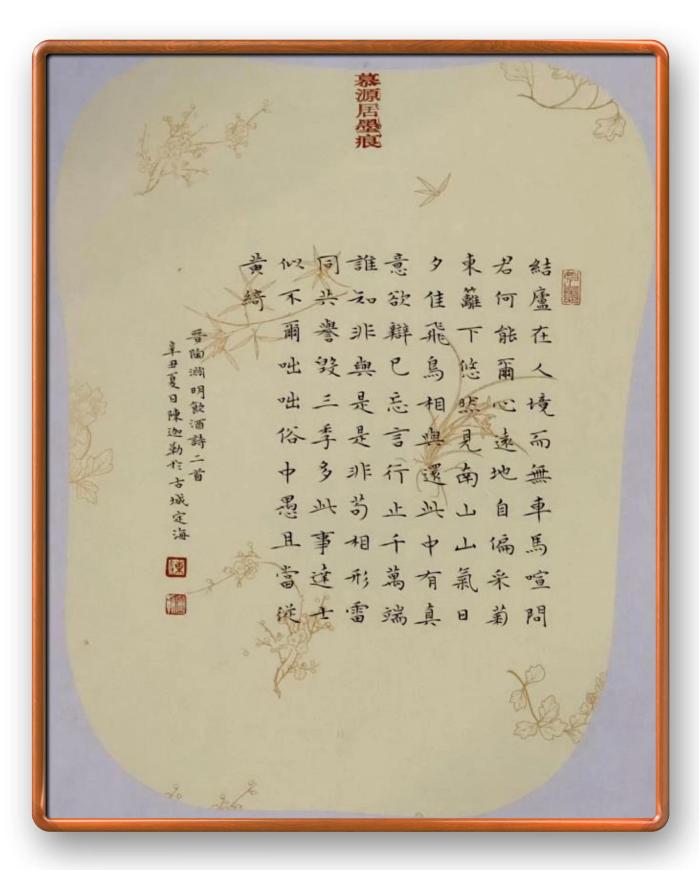 慕源居墨痕
結廬在人境而無車馬喧問
君何能爾心遠地自偏采菊
東籬下悠然見南山山氣日
夕佳飛鳥相與還此中有真
意欲辯已忘言行止千萬端
誰知非與是是非苟相形雷
同共譽毀三季多此事達士
似不爾咄咄俗中愚且當從
黃綺
晉陶淵明飲酒詩二首
辛丑夏日陳迦勒扵古城定海
陳